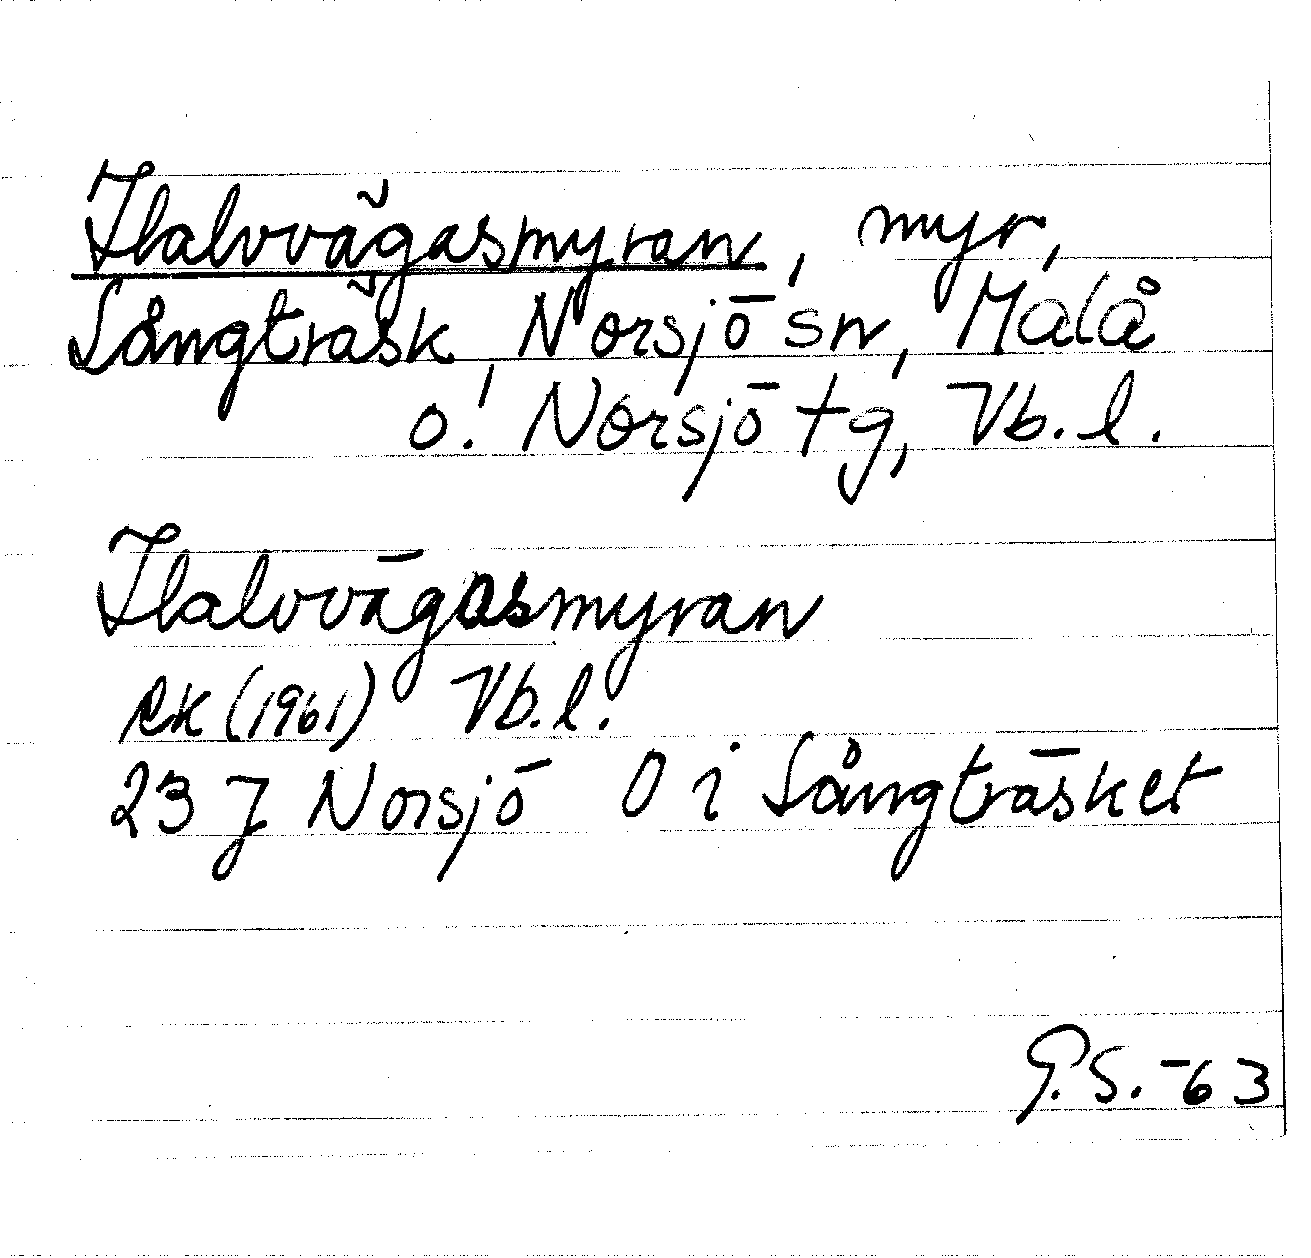 Halvvägasmyran, myr,
Långträsk, Norsjö sn, Malå
o. Norsjö tg, Vb. l.
Halvvägasmyran
Rk (1961) Vb. l.
23 J Norsjö O i Långträsket
G.S. -63